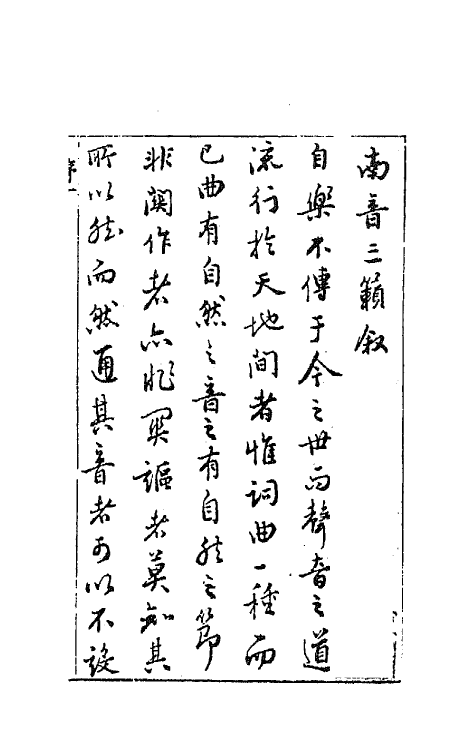 南音三籟敘
自樂不傳于今之世而聲音之道
流行於天地間者惟詞曲一種而
已曲有自然之音之有自然之節
非關作者亦非關謳者莫知其
所以然而然通其音者可以不設
序一